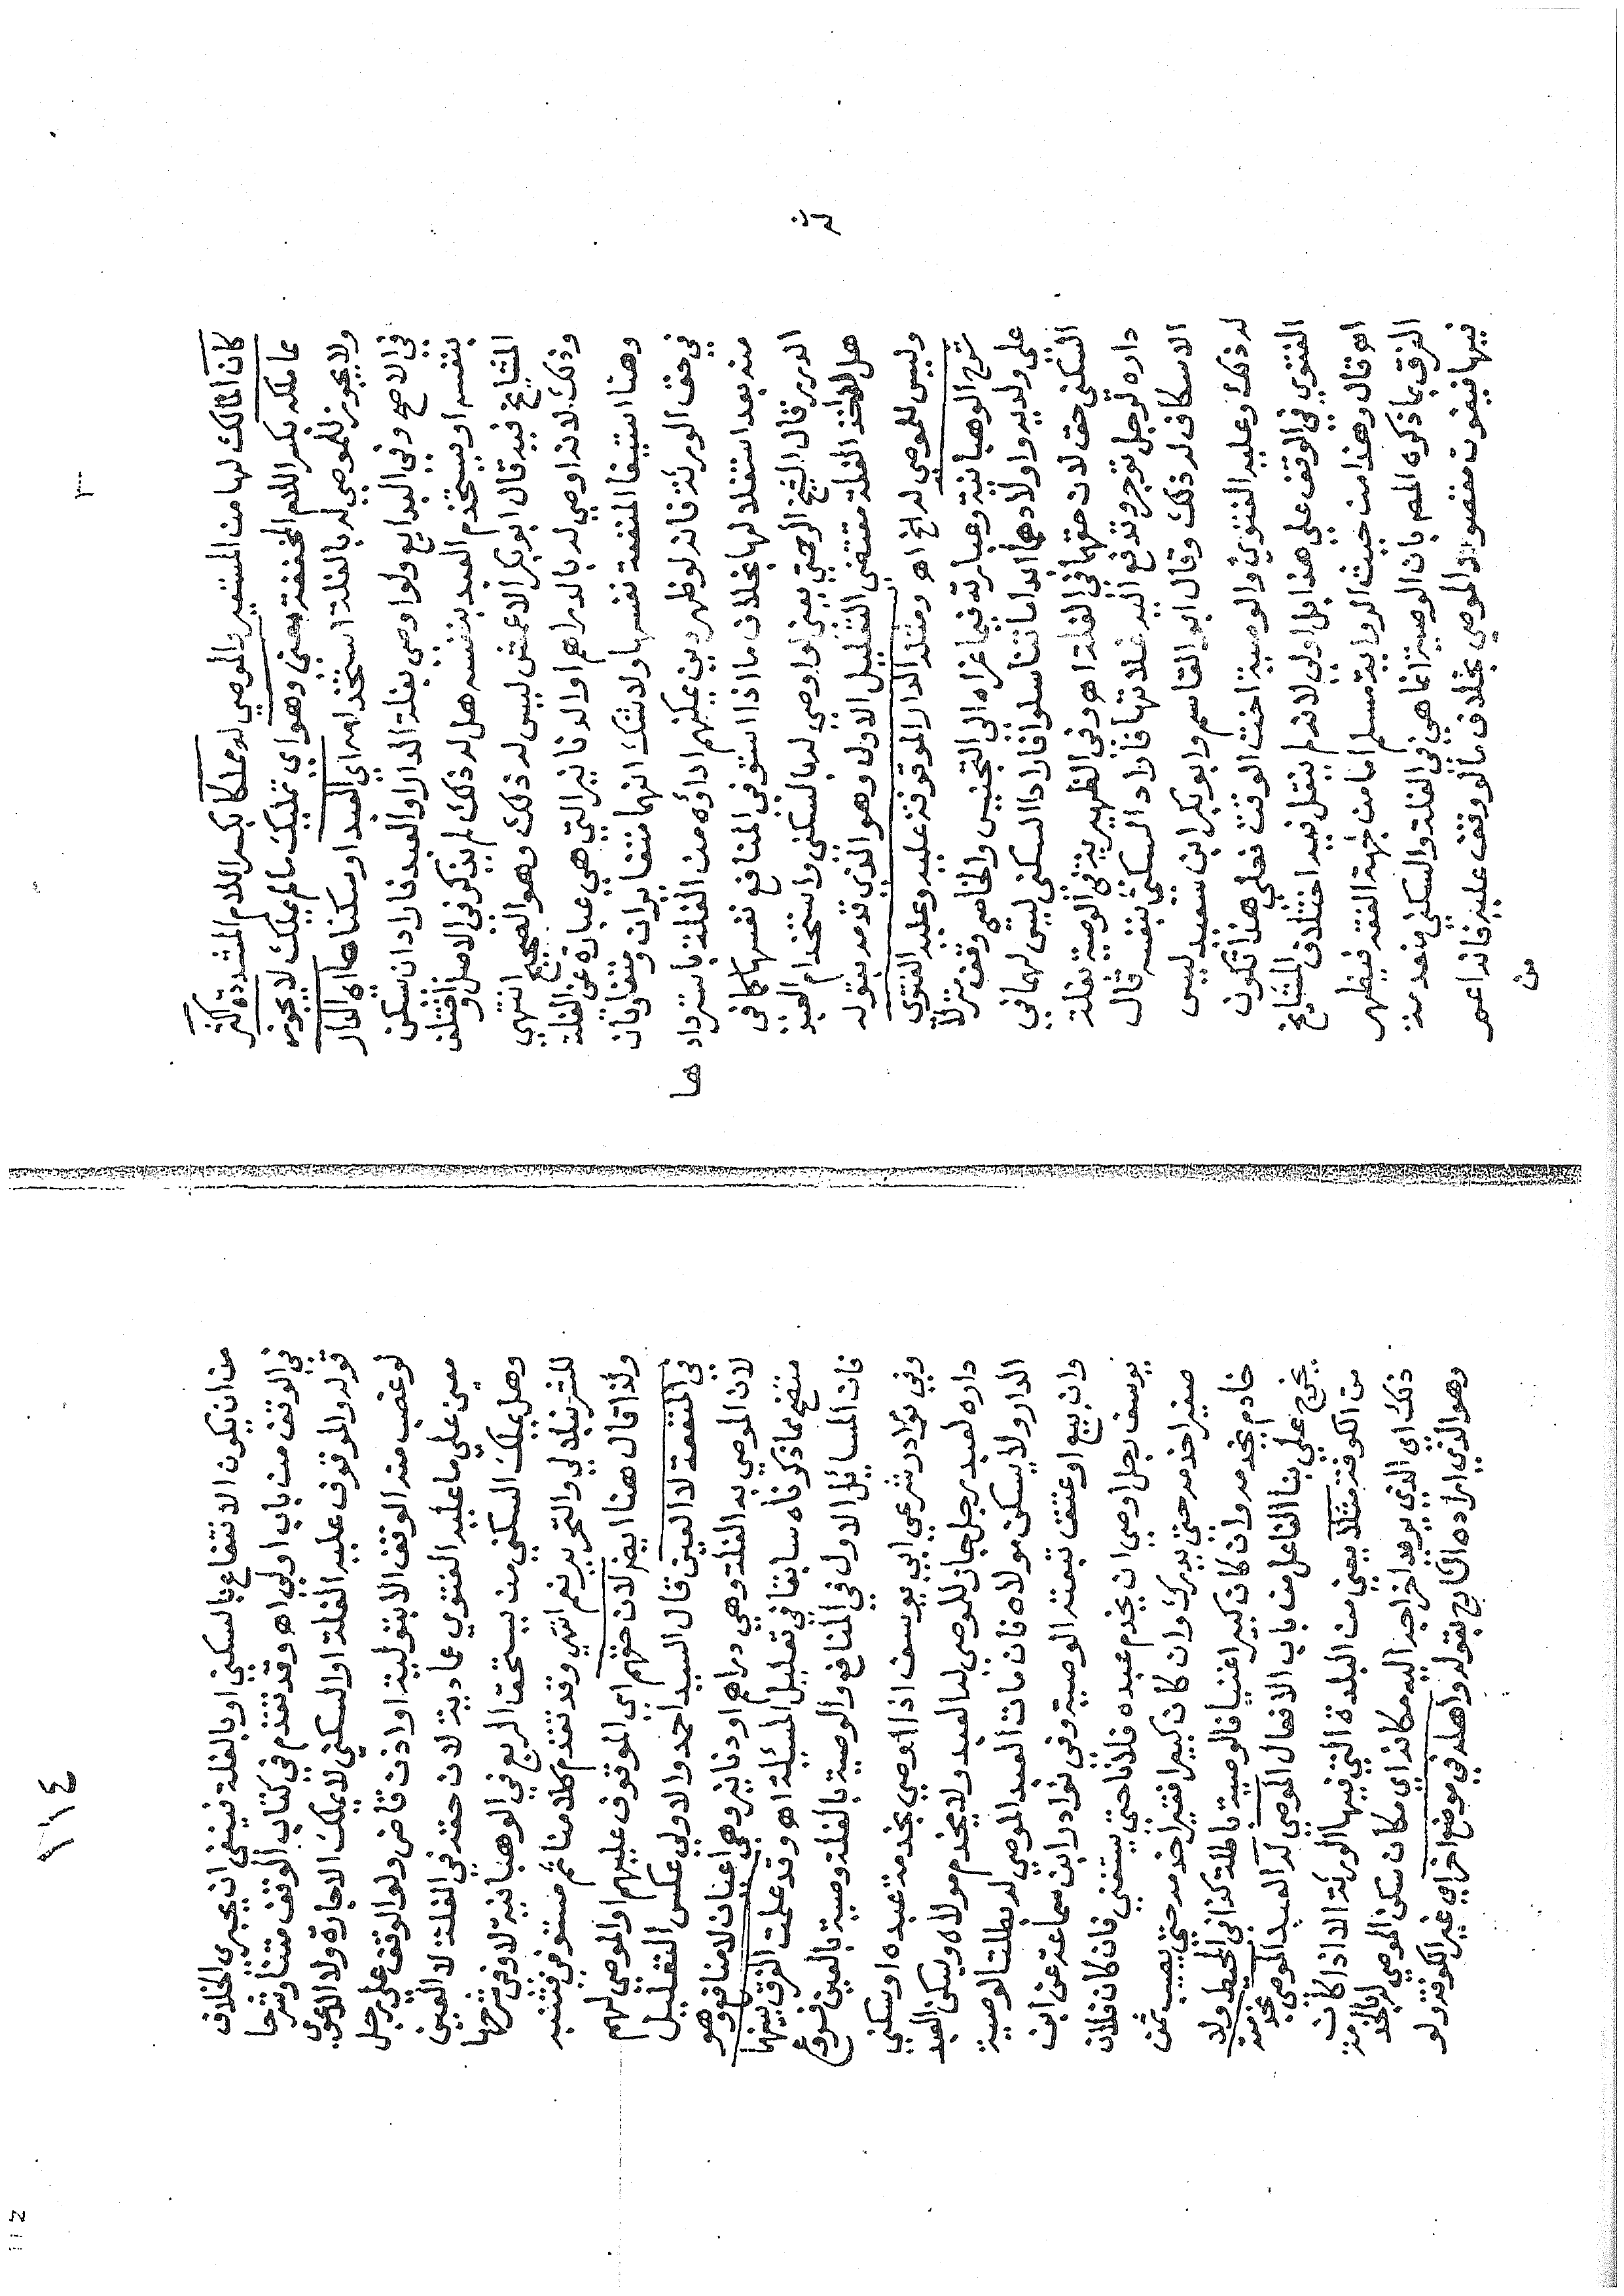 كان المالك لها من المستعير والموصي له مملكا بكسر اللام المشددة اكثر
مما ملكه بكسر اللام المخففة بمعنى وهو اي تمليك ما لم يملك لا يجوز
ولا يجوز للموصي له بالغلة استخدامه اي العبد او سكناها اي الدار
في الاصح وفي البدايع ولو اوصي بغلة الدار او العبد فاراد ان يسكن
بنفسه او يستخدم العبد بنفسه هل له ذلك لم يذكر في الاصل واختلف
المشايخ فيه قال ابو بكر الاعمش ليس له ذلك وهو الصحيح انتهي
وذلك لانه اوصي له بالدراهم او الدنانير التي هي عبارة عن الغلة
وهنا استيفا المنفعة نفسها ولا شك انهما متغايران ومتفاوتان
في حق الورثة فانه لو ظهر دين يمكنهم اداؤه من الغلة باستردادها
منه بعد استغلالها بخلاف ما اذا استوفي المنافع نفسها كما في
الدرر قال الشيخ الرحمتي يعني لو اوصي له بالسكني واستخدام العبد
هل له اخذ الغلة مقتضى التعليل الاول وهو الذي قدمه بقوله
وليس للموصي له الخ اه ومثله الدار الموقوفة عليه وعليه الفتوى
شرح الوهبانية وعبارته فيما عزاه الى التجنيس والخاصي وقف منزلا
على ولديه واولادهما ابدا ما تناسلوا فارادا السكنى ليس لهما في
السكنى حق لان حقهما في الغلة اه وفي الظهيرية في الوصية بغلة
داره لرجل تؤجر وتدفع اليه غلاتها فاراد السكني بنفسه قال
الاسكاف له ذلك وقال ابو القاسم وابو بكر ابن سعيد ليس
له ذلك وعليه الفتوي والوصية اخت الوقف فعلي هذا تكون
الفتوي في الوقف علي هذا بل اولي لانه لم ينقل فيه اختلاف المشايخ
اه قال وهذا من حيث الرواية مسلم اما من جهة الفقه فيظهر
الفرق بما ذكره المص بان الوصية انما هي في الغلة والسكني معدمة
فيها فيفوت مقصود الموصي بخلاف ما لو وقف عليه فانه اعم
من
١١٤
من ان يكون الانتفاع بالسكني او بالغلة فينبغي ان يجري الخلاف
في الوقف من باب اولي اه وقد تقدم في كتاب الوقف متنا وشرحا
قوله والموقوف عليه الغلة او السكني لا يملك الاجارة ولا الدعوى
لو غصب منه الوقف الا بتولية او اذن قاض ولو الوقف علي رجل
معين علي ما عليه الفتوي عمادية لان حقه في الغلة لا العين
وهل يملك السكني من يستحق الريع في الوهبانية لا وفي شرحها
للشرنبلالي والتحرير نعم انتهي وقد تقدم كلامنا ثم مستوفي فتنبه
ولذا قال هنا ايضا لان حقهم اي الموقوف عليهم او الموصي لهم
في المنفعة لا العين قال السيد احمد والاولي عكس التعليل
لان الموصي به الغلة وهي دراهم او دنانير وهي اعيان لا منافع وهو
متضح بما ذكرناه سابقا في تعليل المسئلة اه وقد علمت الفرق بينهما
فان المسائل الاول في المنافع والوصية بالغلة وصية بالعين فروع
وفي نوادر شرعي ابي يوسف اذا اوصي بخدمة عبده او سكني
داره لعبد رجل جاز للموصي له العبد ولا يخدم مولاه ويسكن العبد
الدار ولا يسكن مولاه فان مات العبد الموصي له بطلت الوصية
وان بيع او عتق تبعته الوصية وفي نوادر ابن سماعة عن ابن
يوسف رجل اوصي ان يخدم عبده فلانا حتي يستغني فان كان فلان
صغيرا خدمه حتي يدرك وان كان كبيرا فقيرا خدمه حتي يصيب ثمن
خادم يخدمه وان كان كبيرا غنيا فالوصية باطلة كذا في المحيط ولو
يخرج علي بنا الفاعل من باب الافعال الموصي له العبد الموصي بخدمته
من الكوفة مثلا يعني من البلدة التي فيها الورثة الا اذا كانت
ذلك اي الذي يريد اخراجه اليه مكانه اي مكان سكن الموصي له بالخدمة
وهو الذي اراده الشارح بقوله واهله في موضع اخر اي غير الكوفة ولو